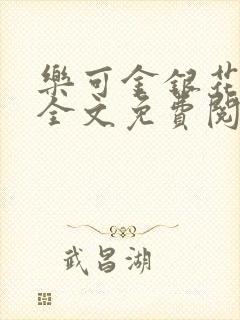 樂可金銀花
全文免費閱
武昌湖